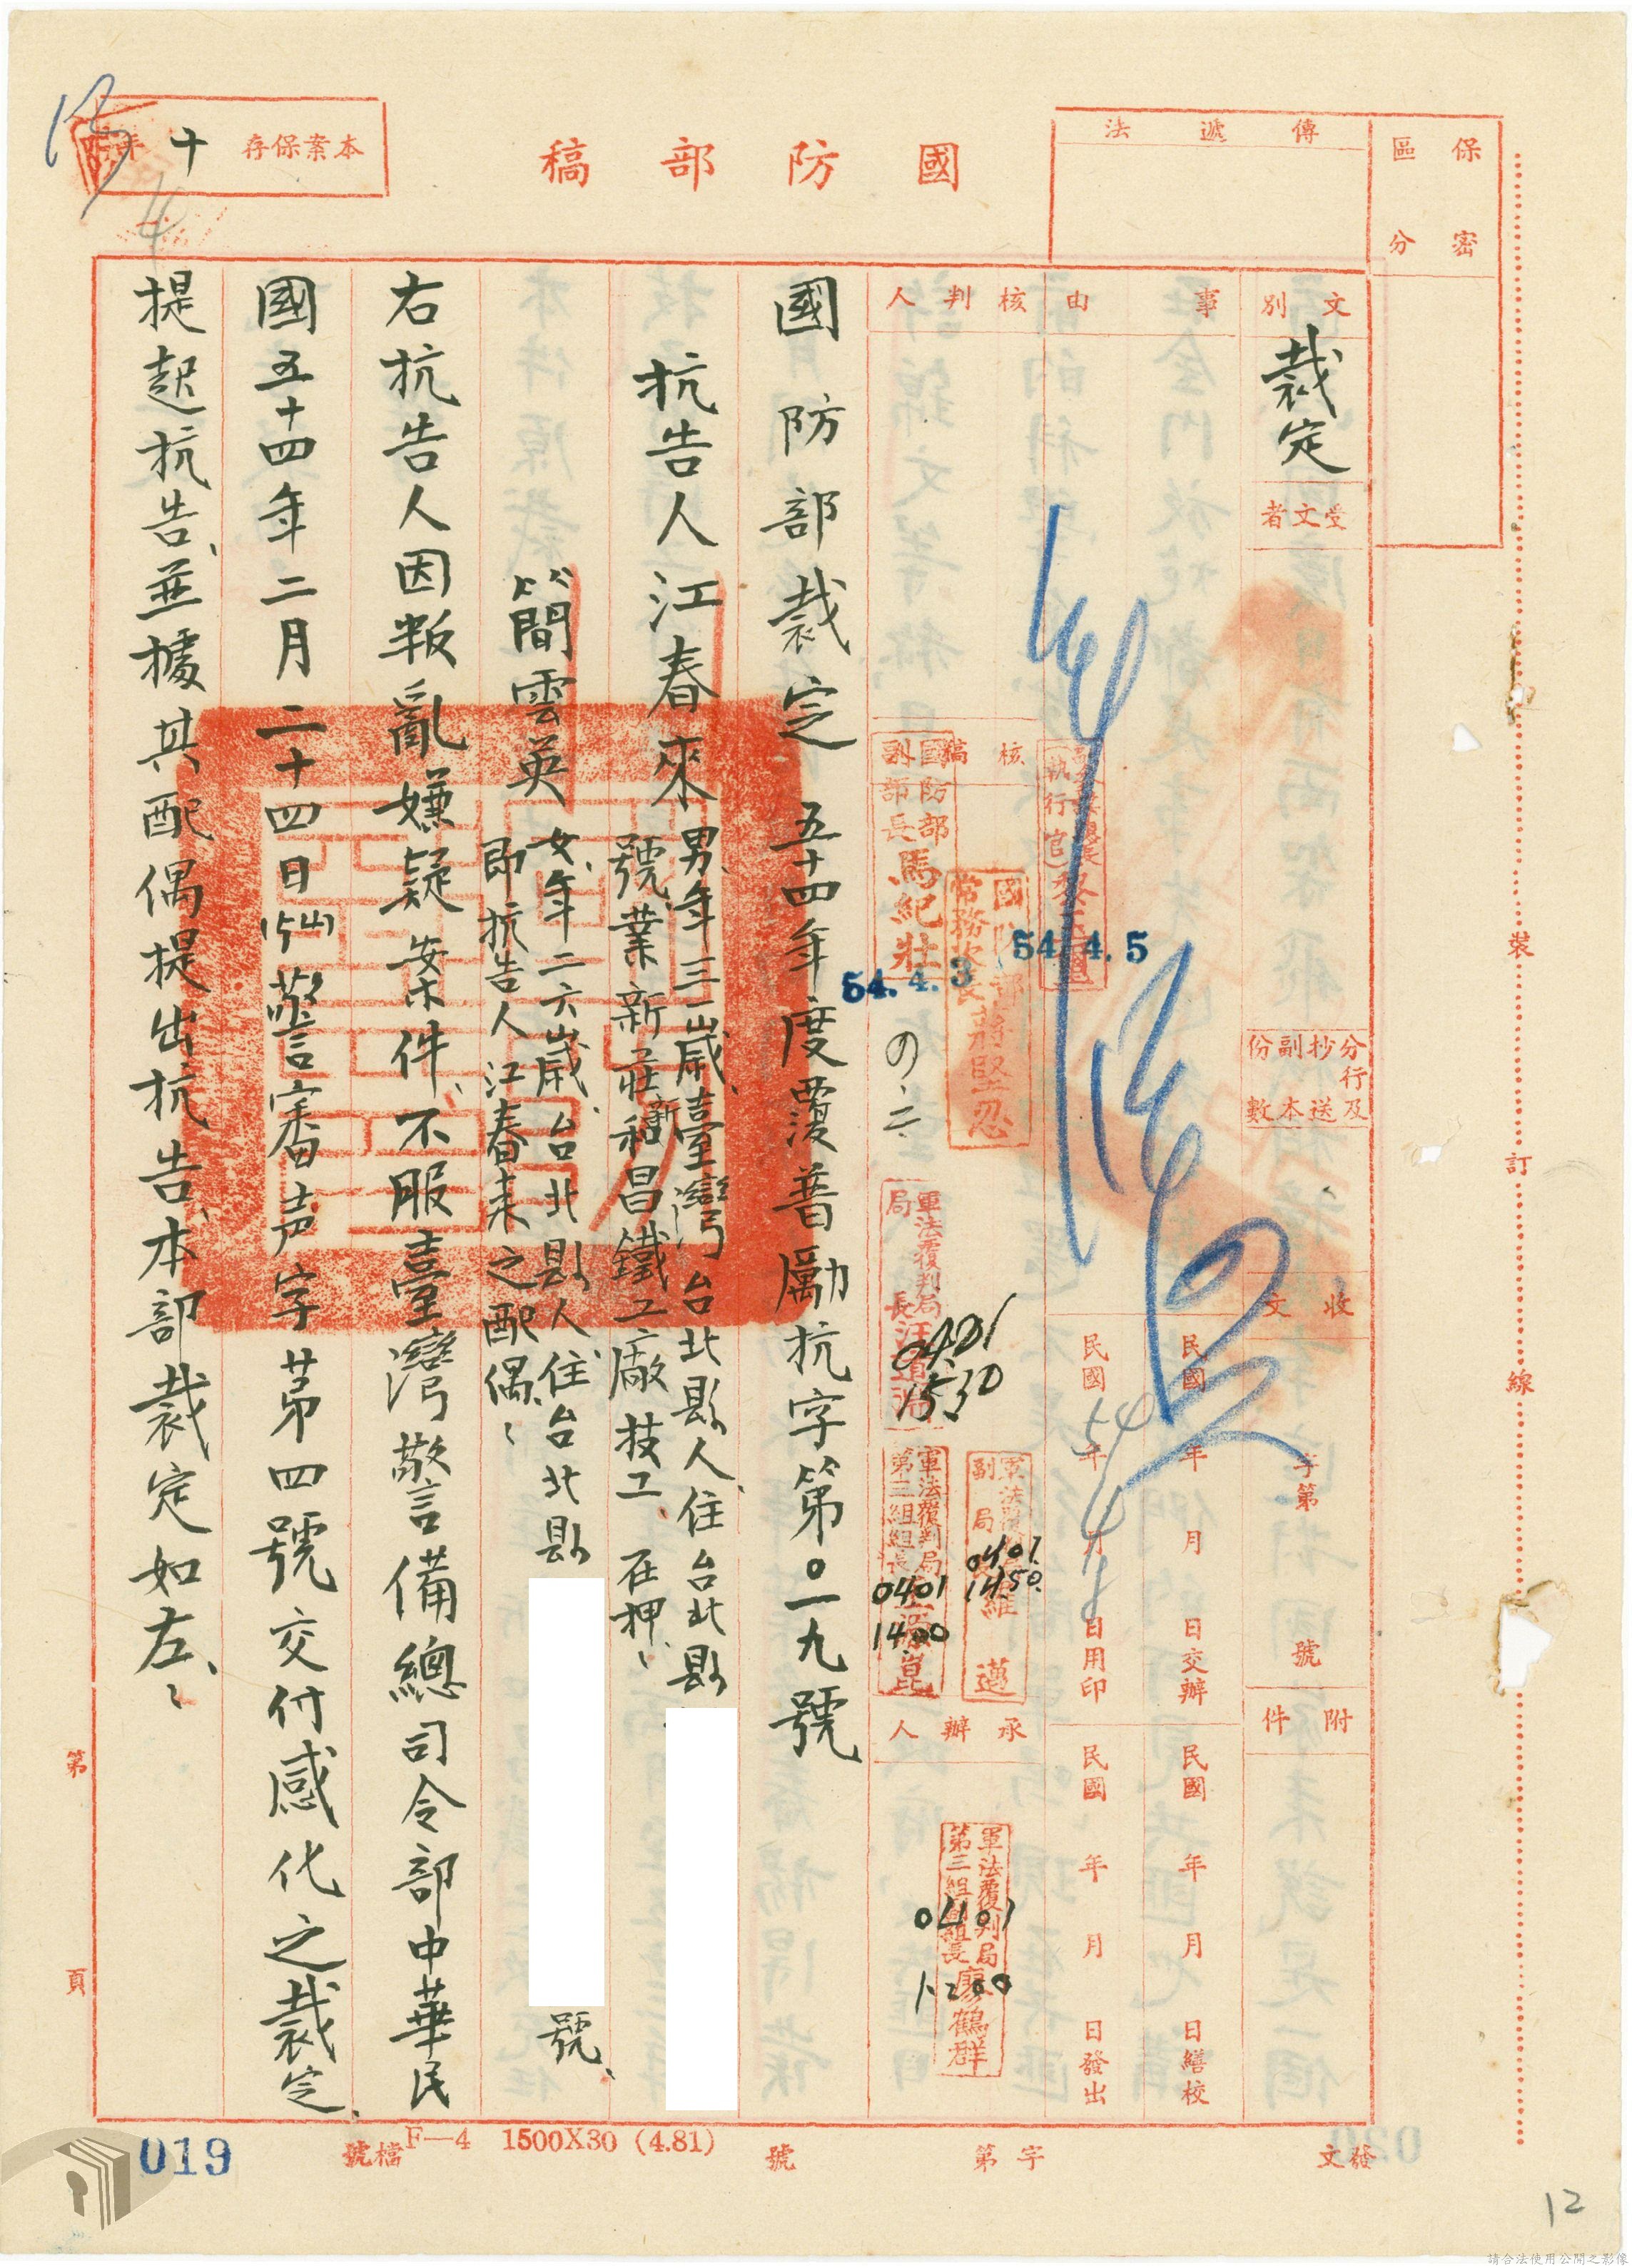 國防部稿
本案保存十年
傳遞法
保密區分
文別
裁定
受文者
事由
核判人
分行及抄送副本份數
收文
字第
號
附件
民國
年
月
日交辦
民國
年
月
日繕校
民國
54年
4月
日用印
民國
年
月
日發出
核稿
承辦人
國防部副部長馬紀壯
54.4.3
54.4.5
國防部常務次長蔣堅忍
軍法覆判局局長汪道淵
0401
1530
軍法覆判局副局長羅邁
0401
1450
軍法覆判局第三組組長
0401
1400
軍法覆判局第三組副組長廖鶴群
0401
1200
國防部裁定 五十四年度覆普勵抗字第〇一九號
抗告人江春來男、年三一歲、臺灣台北縣人、住台北縣
號、業新莊新和昌鐵工廠技工、在押、
簡雲英女、年二六歲、台北縣人、住台北縣
號、
即抗告人江春来之配偶、
右抗告人因叛亂嫌疑案件、不服臺灣警備總司令部中華民
國五十四年二月二十四日(54)警審声字第四號交付感化之裁定、
提起抗告、並據其配偶提出抗告、本部裁定如左、
裝訂線
第
頁
019
檔號
F—4 1500X30 (4.81)
發文
字第
號
020
12
請合法使用公開之影像